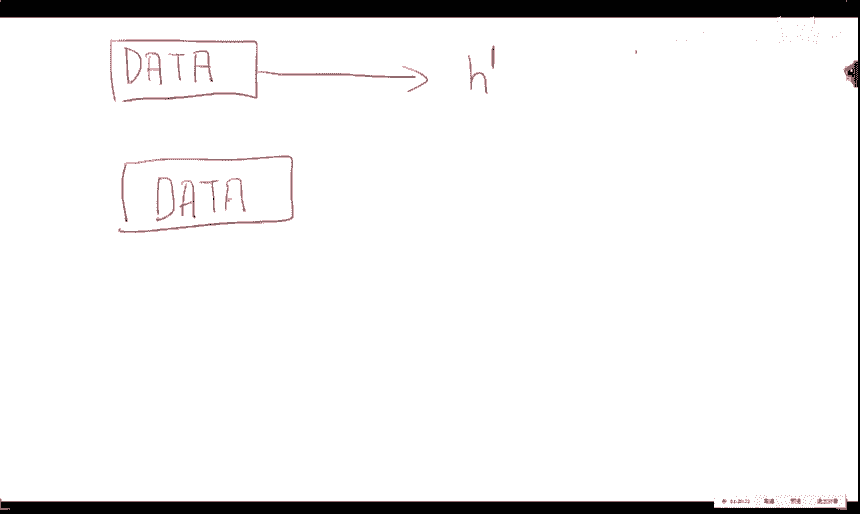 DATA h'
DATA